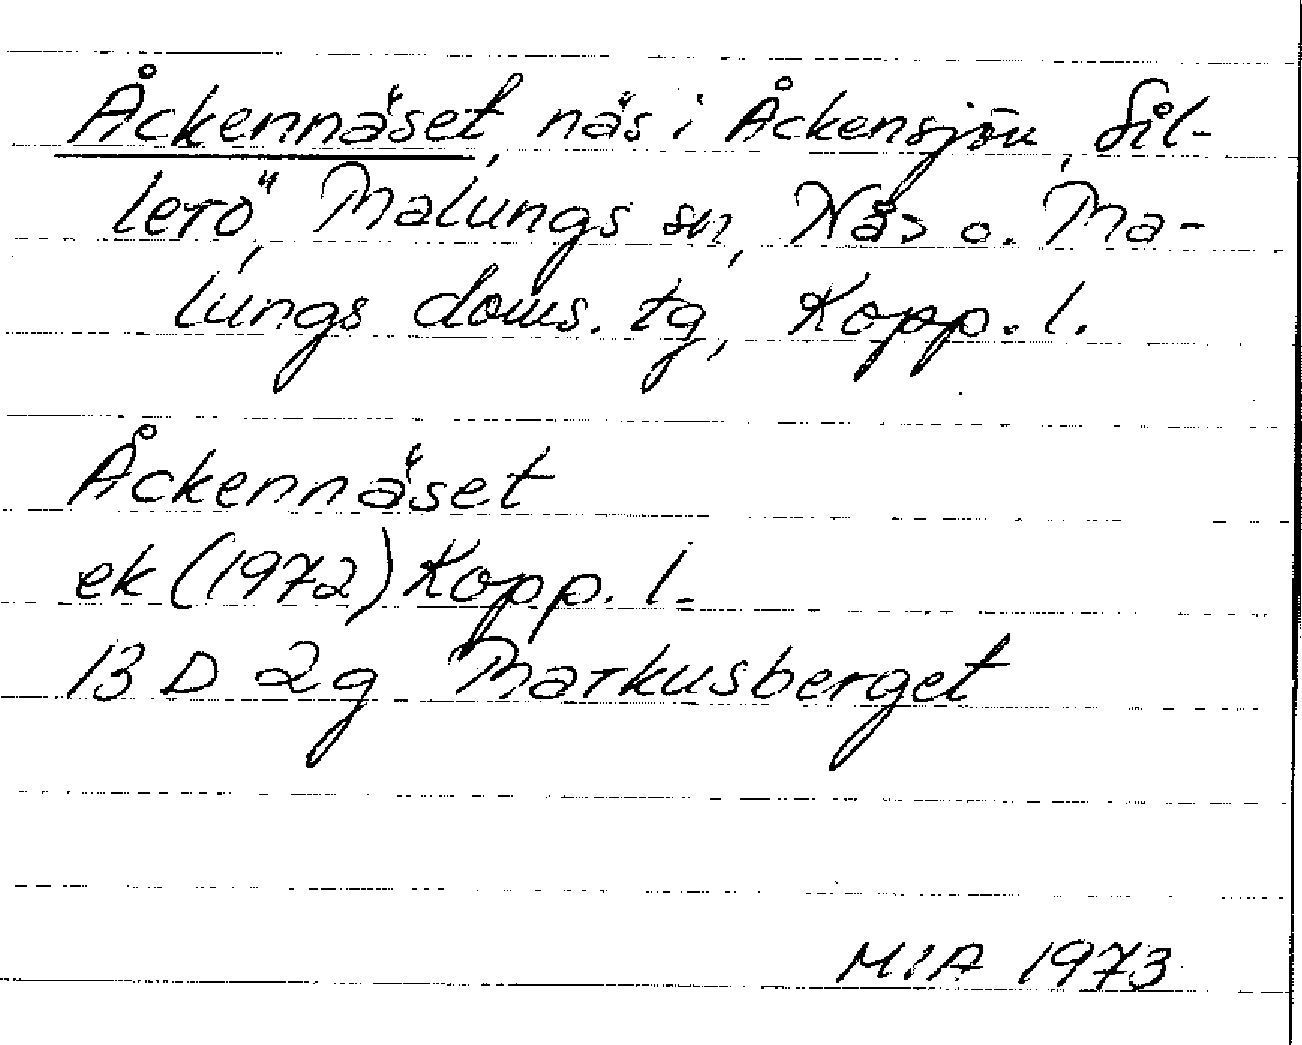 Åckennäset, näs i Åckensjön, Sil-
lerö, Malungs sn, Näs o. Ma-
lungs doms. tg, Kopp. l.
Åckennäset
ek (1972) Kopp. l.
13 D 2g Markusberget
MIA 1973